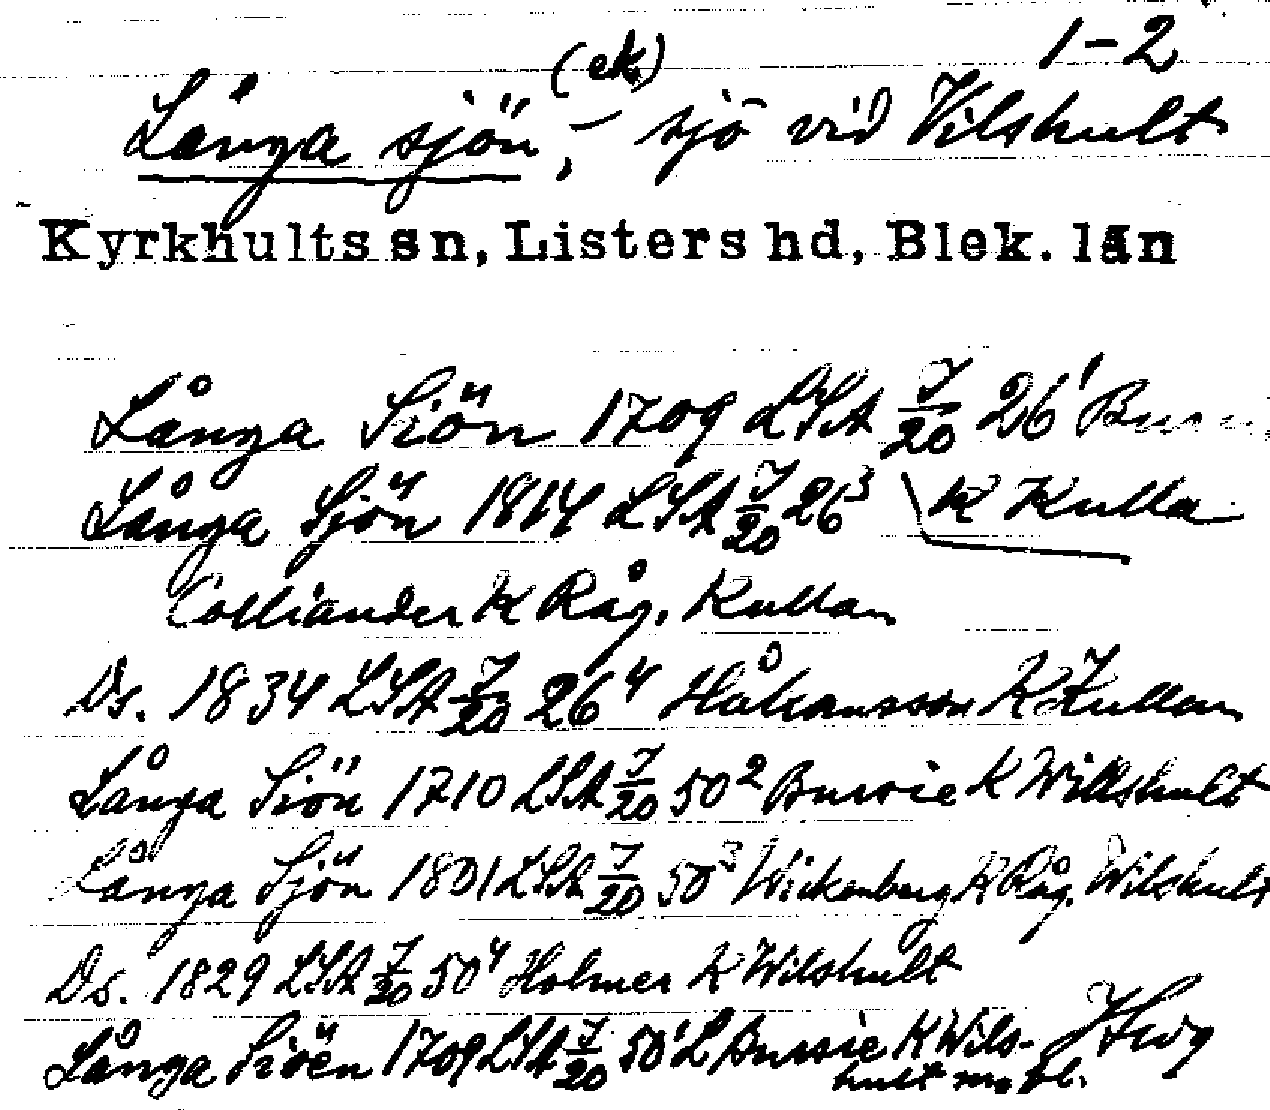 1-2
(ek)
Långa sjön, – sjö vid Vilshult
Kyrkhults sn, Listers hd, Blek. län
Långa Siön 1709 LSA J/20 26¹
Långa Sjön 1814 LSA J/20 26³ K Kulla
Colliander K Råg. Kullan
Ds. 1834 LSA J/20 26⁴ Håkansson K Kullan
Långa Siön 1710 LSA J/20 50² Bursie K Willshult
Långa Sjön 1801 LSA J/20 50³ Wickenberg K Råg. Wilshult
Ds. 1829 LSA J/20 50⁴ Holmer K Wilshult
Långa Siöen 1709 LSA J/20 50¹ L Bursie K Wils-
hult m. fl.